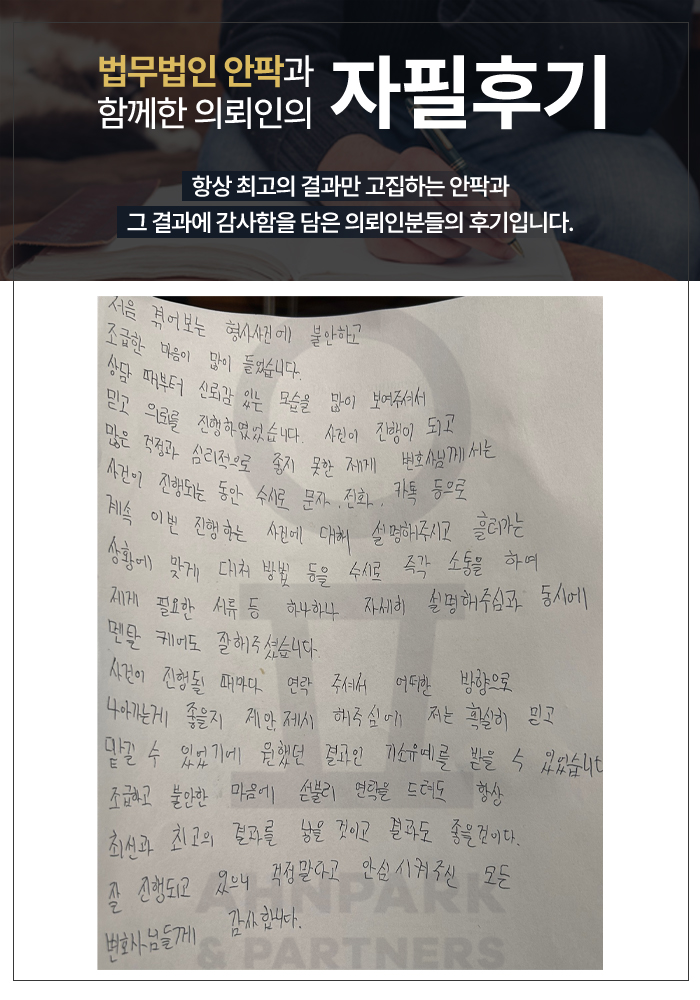 법무법인 안팍과
함께한 의뢰인의
자필후기
항상 최고의 결과만 고집하는 안팍과
그 결과에 감사함을 담은 의뢰인분들의 후기입니다.
처음 겪어보는 형사사건에 불안하고
조급한 마음이 많이 들었습니다.
상담 때부터 신뢰감 있는 모습을 많이 보여주셔서
믿고 의뢰를 진행하였었습니다. 사건이 진행이 되고
많은 걱정과 심리적으로 좋지 못한 제게 변호사님께서는
사건이 진행되는 동안 수시로 문자, 전화, 카톡 등으로
계속 이번 진행하는 사건에 대해 설명해주시고 흘러가는
상황에 맞게 대처 방법 등을 수시로 즉각 소통을 하여
제게 필요한 서류 등 하나하나 자세히 설명해주심과 동시에
멘탈 케어도 잘해주셨습니다.
사건이 진행될 때마다 연락 주셔서 어떠한 방향으로
나아가는게 좋을지 제안, 제시 해주심에 저는 확실히 믿고
맡길 수 있었기에 원했던 결과인 기소유예를 받을 수 있었습니다
조급하고 불안한 마음에 섣불리 연락을 드려도 항상
최선과 최고의 결과를 낳을 것이고 결과도 좋을것이다.
잘 진행되고 있으니 걱정말라고 안심시켜주신 모든
변호사님들께 감사합니다.
AHNPARK
& PARTNERS